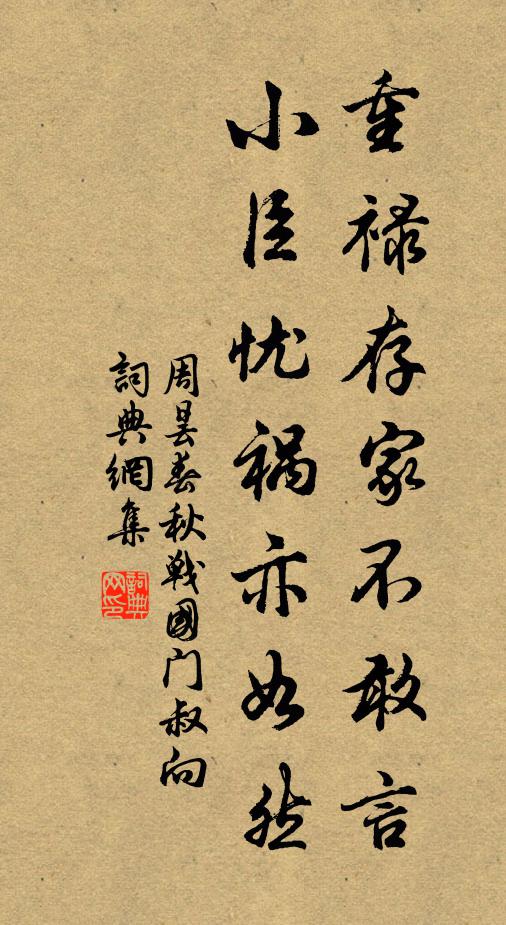 重禄存家不敢言
小臣忧祸亦如然
周昙春秋戦國门叔向
詞典網集
詞典网印